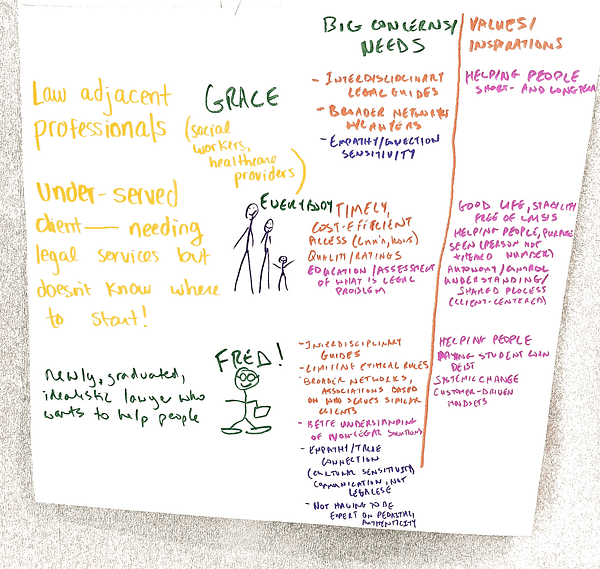 BIG CONCERNS/
NEEDS
VALUES/
INSPIRATIONS
Law adjacent
professionals
(social
workers,
healthcare
providers)
GRACE
- INTERDISCIPLINARY
LEGAL GUIDES
- BROADER NETWORKS
- EMPATHY/
SENSITIVITY
HELPING PEOPLE
SHORT- AND LONG-TERM
Under-served
client — needing
legal services but
doesn't know where
to start!
EVERYBODY
TIMELY,
COST-EFFICIENT
ACCESS
QUALITY/RATINGS
EDUCATION/ASSESSMENT
OF WHAT IS LEGAL
PROBLEM
GOOD LIFE, STABILITY
FREE OF CRISIS
HELPING PEOPLE,
SEEN (PERSON NOT
NUMBER)
AUTONOMY/CONTROL
UNDERSTANDING/
SHARED PROCESS
(CLIENT-CENTERED)
newly graduated,
idealistic lawyer who
wants to help people
FRED!
- INTERDISCIPLINARY
GUIDES
- LIMITING ETHICAL RULES
- BROADER NETWORKS,
ASSOCIATIONS BASED
ON WHO SERVES SIMILAR
CLIENTS
- BETTE UNDERSTANDING
OF NON-LEGAL SOLUTIONS
- EMPATHY/TRUE
CONNECTION
(CULTURAL SENSITIVITY)
COMMUNICATION, NOT
LEGALESE
- NOT HAVING TO BE
EXPERT ON PEDASTAL,
AUTHENTICITY
HELPING PEOPLE
PAYING STUDENT LOAN
DEBT
SYSTEMIC CHANGE
CUSTOMER-DRIVEN
MINDSETS